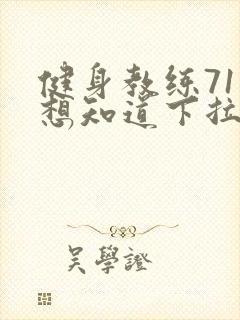 健身教练71
想知道下拉
吴學證